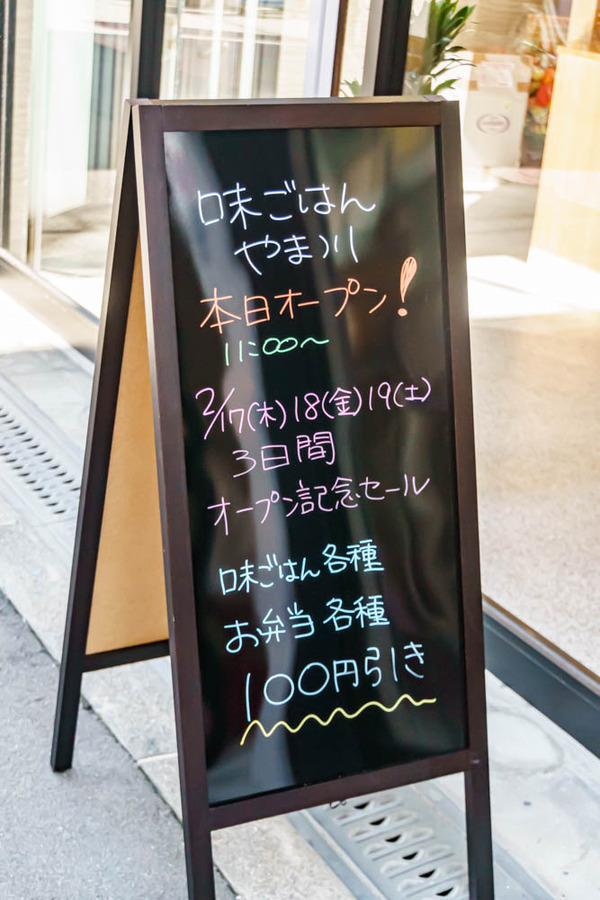 味ごはん
やまツ川
本日オープン!
11:00〜
2/17(木)18(金)19(土)
3日間
オープン記念セール
味ごはん各種
お弁当各種
100円引き